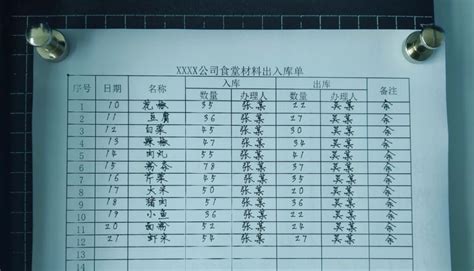 XXXX公司食堂材料出入库单
序号 日期 名称 入库 出库 备注
数量 办理人 数量 办理人
1 10 花椒 35 张某 22 吴某 余
2 11 豆腐 36 张某 27 吴某 余
3 12 白菜 45 张某 30 吴某 余
4 13 辣椒 47 张某 34 吴某 余
5 14 肉丸 55 张某 41 吴某 余
6 15 粉条 78 张某 37 吴某 余
7 16 芹菜 45 张某 36 吴某 余
8 17 大米 50 张某 31 吴某 余
9 18 猪肉 51 张某 20 吴某 余
10 19 小鱼 36 张某 22 吴某 余
11 20 面粉 52 张某 24 吴某 余
12 21 虾米 54 张某 27 吴某 余